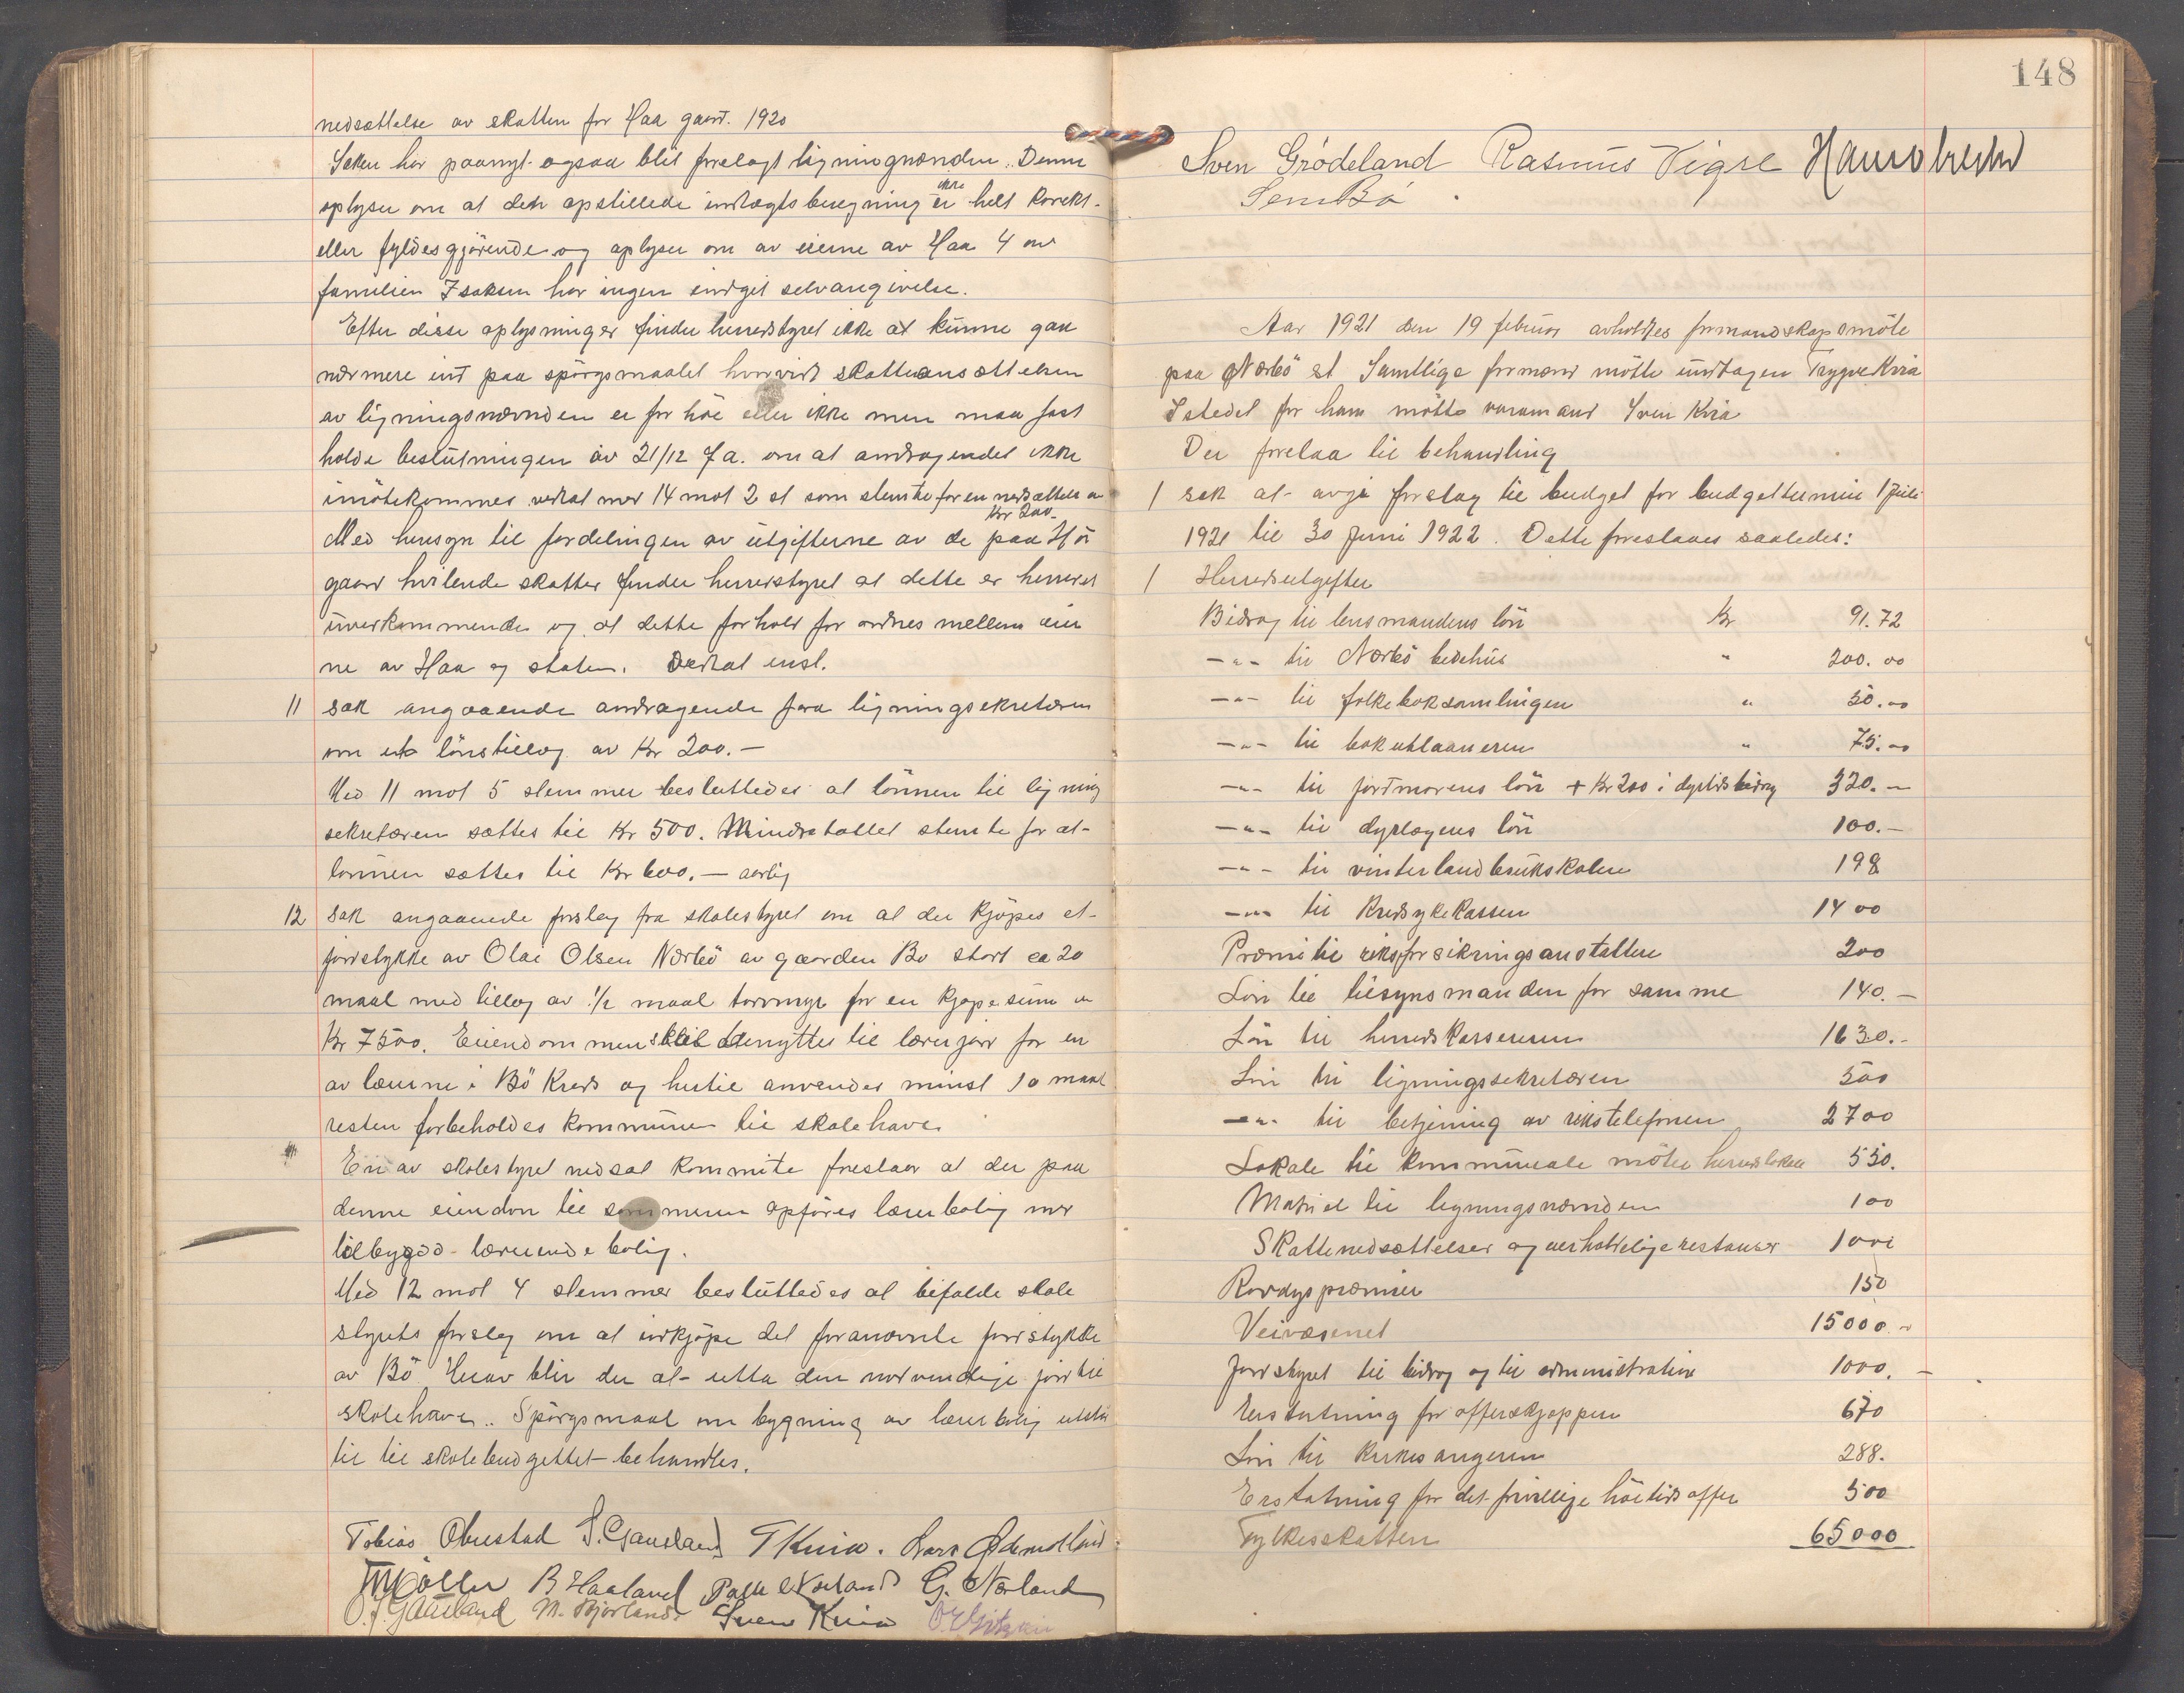 nedsættelse av skatten for Haa gaard. 1920
Saken har paanyt ogsaa blit forelagt ligningnænden. Denne
oplyser om at den opstillede indtægtsberegning ikke er helt korrekt
eller fyldesgjörende og oplyser om av eierne av Haa 4 av
familien Isaksen har ingen indgit selvangivelse.
Efter disse oplysninger finder herredstyret ikke at kunne gaa
nærmere ind paa spörgsmaalet hvorvidt skatteansættelsen
av ligningsnævnden er for höi eller ikke men maa fast
holde beslutningen av 21/12 f a. om at andragendet ikke
imötekommes vedtat mer 14 mot 2 st som stemte for en nedsættelse av
Kr 200.-
Med hensyn til fordelingen av utgifterne av de paa Hå
gaard hvilende skatter finder herredstyret at dette er herredet
uvedkommende og at dette forhold for ordnes mellem eier
ne av Haa og staten. Vedtat enst.
11 sak angaaende andragende fra ligningsekretæren
om et lönstillæg av Kr 200.-
Med 11 mot 5 stemmer besluttedes at lönnen til ligning
sekretæren sættes til Kr 500. Mindretallet stemte for at
lönnen sættes til Kr 600.- aarlig
12 Sak angaaende forslag fra skolestyret om at der kjöpes et
jordstykke av Olai Olsen Nærbö av gaarden Bö stort ca 20
maal med tillæg av 1/2 maal torvmyr for en kjöpesum av
Kr 7500. Eiendommen skal benyttes til lærerjord for en
av lærerne i Bö Kreds og hertil anvendes minst 10 maal
resten forbeholdes kommunen til skolehave.
En av skolestyret nedsat kommite foreslaar at der paa
denne eiendom til sommeren opföres lærerbolig med
tilbygd lærerindebolig.
Med 12 mot 4 stemmer besluttedes at bifalde skole
styrets forslag om at indkjöpe det forannævnte jordstykke
av Bö Herav blir der at utta den nödvendige jord til
skolehave. Spörgsmaal om bygning av lærerbolig utstår
til til skolebudgettet behandles.
Tobias Obrestad S. Gausland T Kvia. Lars Ödemotland
B Haaland G. Nærland
O. J. Gausland M. Bjorland Sven Kvia
148
Sven Grödeland Rasmus Vigre Hans Obrestad
Sem Bö
Aar 1921 den 19 februar avholdtes formandskapsmöte
paa Nærbö st Samtlige formænd mötte undtagen Trygve Kvia
Istedet for ham mötte varamand Sven Kvia
Der forelaa til behandling
1 sak at avgi forslag til budget for budgettermin 1 Juli
1921 til 30 Juni 1922. Dette foreslaaes saaledes:
1 Herredsutgifter
Bidrag til lensmandens lön Kr 91.72
-"- til Nærbö bedehus " 200.00
-"- til folkeboksamlingen " 50.00
-"- til bokutlaaneren " 75.00
-"- til jordmorens lön + Kr 200 i dyrtidsbidrag 320.-
-"- til dyrlægens lön 100.-
-"- til vinterlandbrukskolen 198
-"- til Kredsykekassen 1400
Præmi til riksforsikringsanstalten 200
Lön til tilsynsmanden for samme 140.-
Lön til herredskassereren 1630.-
Lön til ligningssekretæren 500
-"- til betjening av rikstelefonen 2700
Lokale til kommunale möter herredslokale 550.
Matriel til ligningsnævnden 100
Skattenedsættelser og uerholdelige restanser 1000
Rovdyrpræmier 150
Veivæsenet 15000.-
Jordstyret til bidrag og til administration 1000.-
Erstatning for offerskjæppen 670
Lön til kirkesangeren 288.
Erstatning for det frivillige höitidsoffer 500
Fylkesskatten 65000